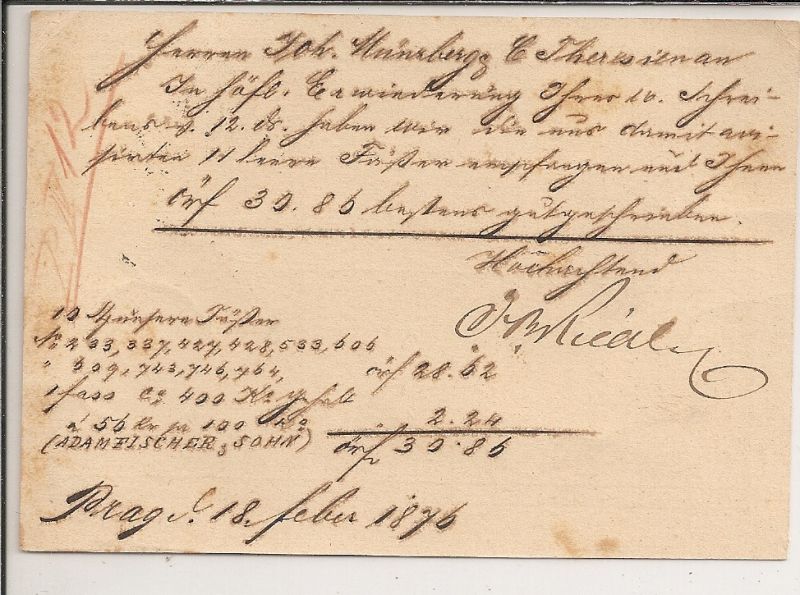 Herren Joh. Münzberg & C Theresienau
In höfl. Erwiederung Ihres w. Schrei-
bens v. 12. ds. haben wir die uns damit avi-
sirten 11 leere Fässer empfangen und Ihnen
örf 30.86 bestens gutgeschrieben.
Hochachtend
J. B. Riedl
10 St unsere Fässer
No 233, 337, 427, 428, 533, 606
" 609, 743, 746, 764, örf 28.62
1 fass Co 400 Ko Gehalt
à 56 Kr pr 100 Ko " 2.24
(ADAM FISCHER & SOHN) örf 30.86
Prag d. 18. feber 1876